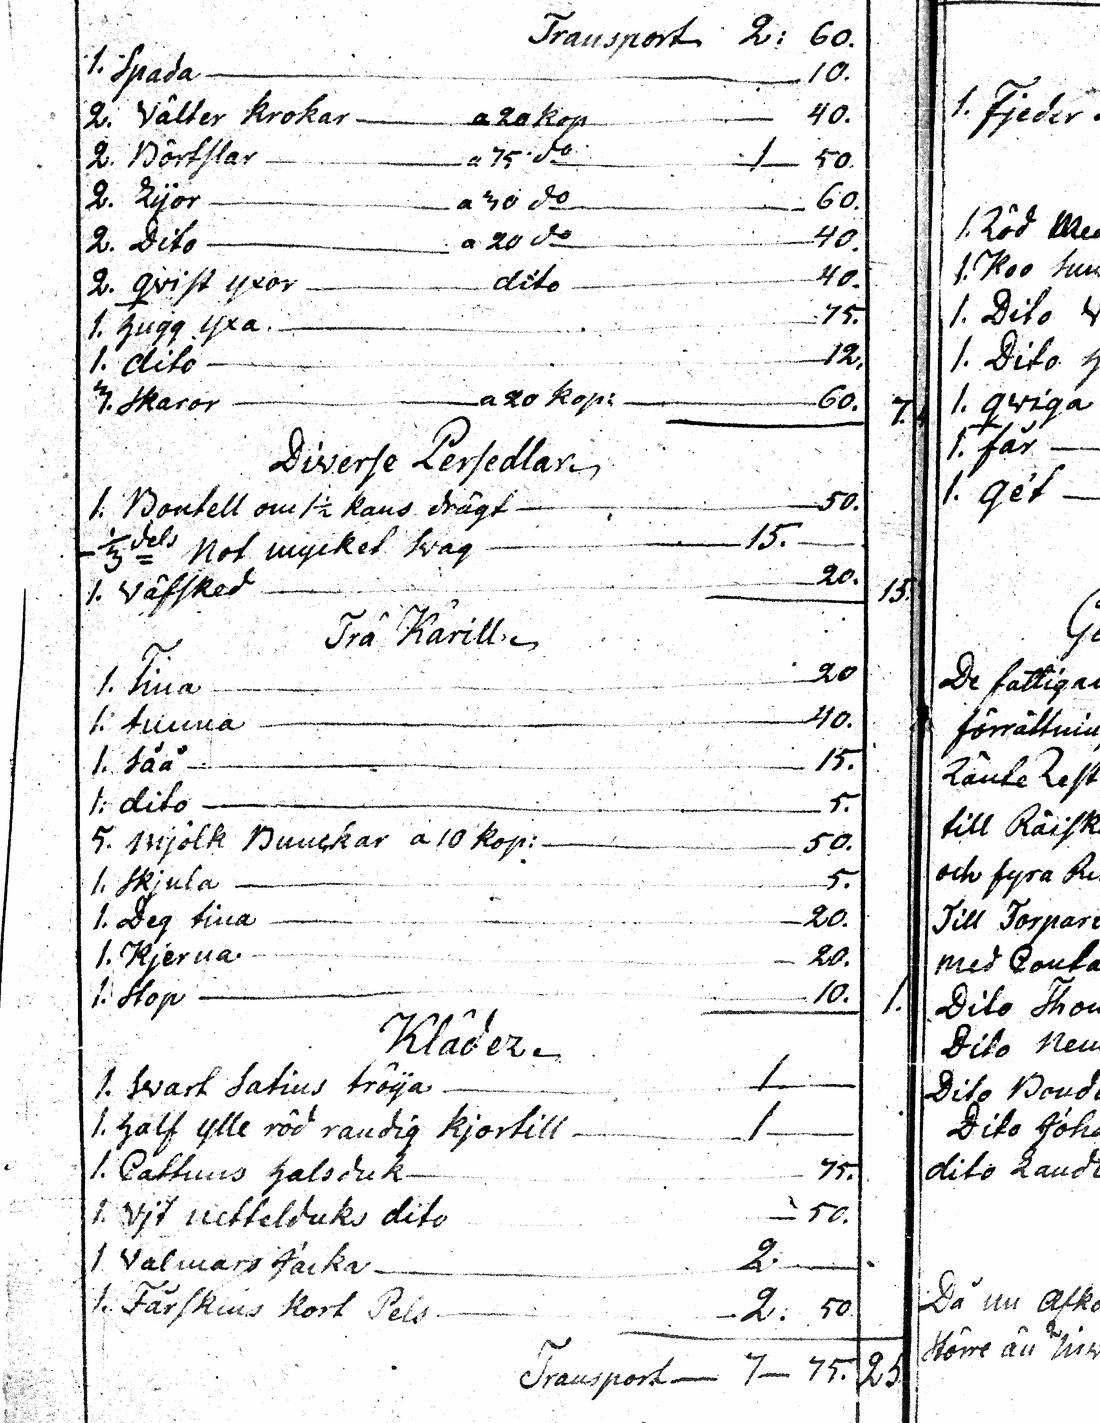 Transport 2: 60.
1. Spada 10.
2. Välter krokar a 20 kop 40.
2. Börtslar a 75 do 1 50.
2. Lijor a 30 do 60.
2. Dito a 20 do 40.
2. qvist yxor dito 40.
1. hugg yxa. 75.
1. dito 12.
3. Skaror a 20 kop: 60. 7.
Diverse Persedlar
1. Boutell om 1½ kans drägt 50.
⅓ dels Not mycket svag 15.
1. Väfsked 20. 15.
Trä Kärill
1. Tina 20
1. tunna 40.
1. såå 15.
1. dito 5.
5. mjölk Bunckar a 10 kop: 50.
1. Skjula 5.
1. Deg tina 20.
1. Kjerna 20.
1. Stop 10. 1.
Kläder
1. Svart Satins tröija 1
1. half ylle röd randig kjortill 1
1. Cattuns halsduk 75.
1. Vit nettelduks dito 50.
1 Valmars Jacka 2.
1. Fårskins kort Pels 2: 50
Transport 7 75. 25
1. Fjeder
1. Röd
1. Koo
1. Dito
1. Dito
1. qviga
1. får
1. gét
De fattigar
förrättnin
Ränte Rest
till
och fyra
Till Torpare
med Conta
Dito Thom
Dito
Dito Bond
Dito Joha
dito Land
Då nu Afko
större än